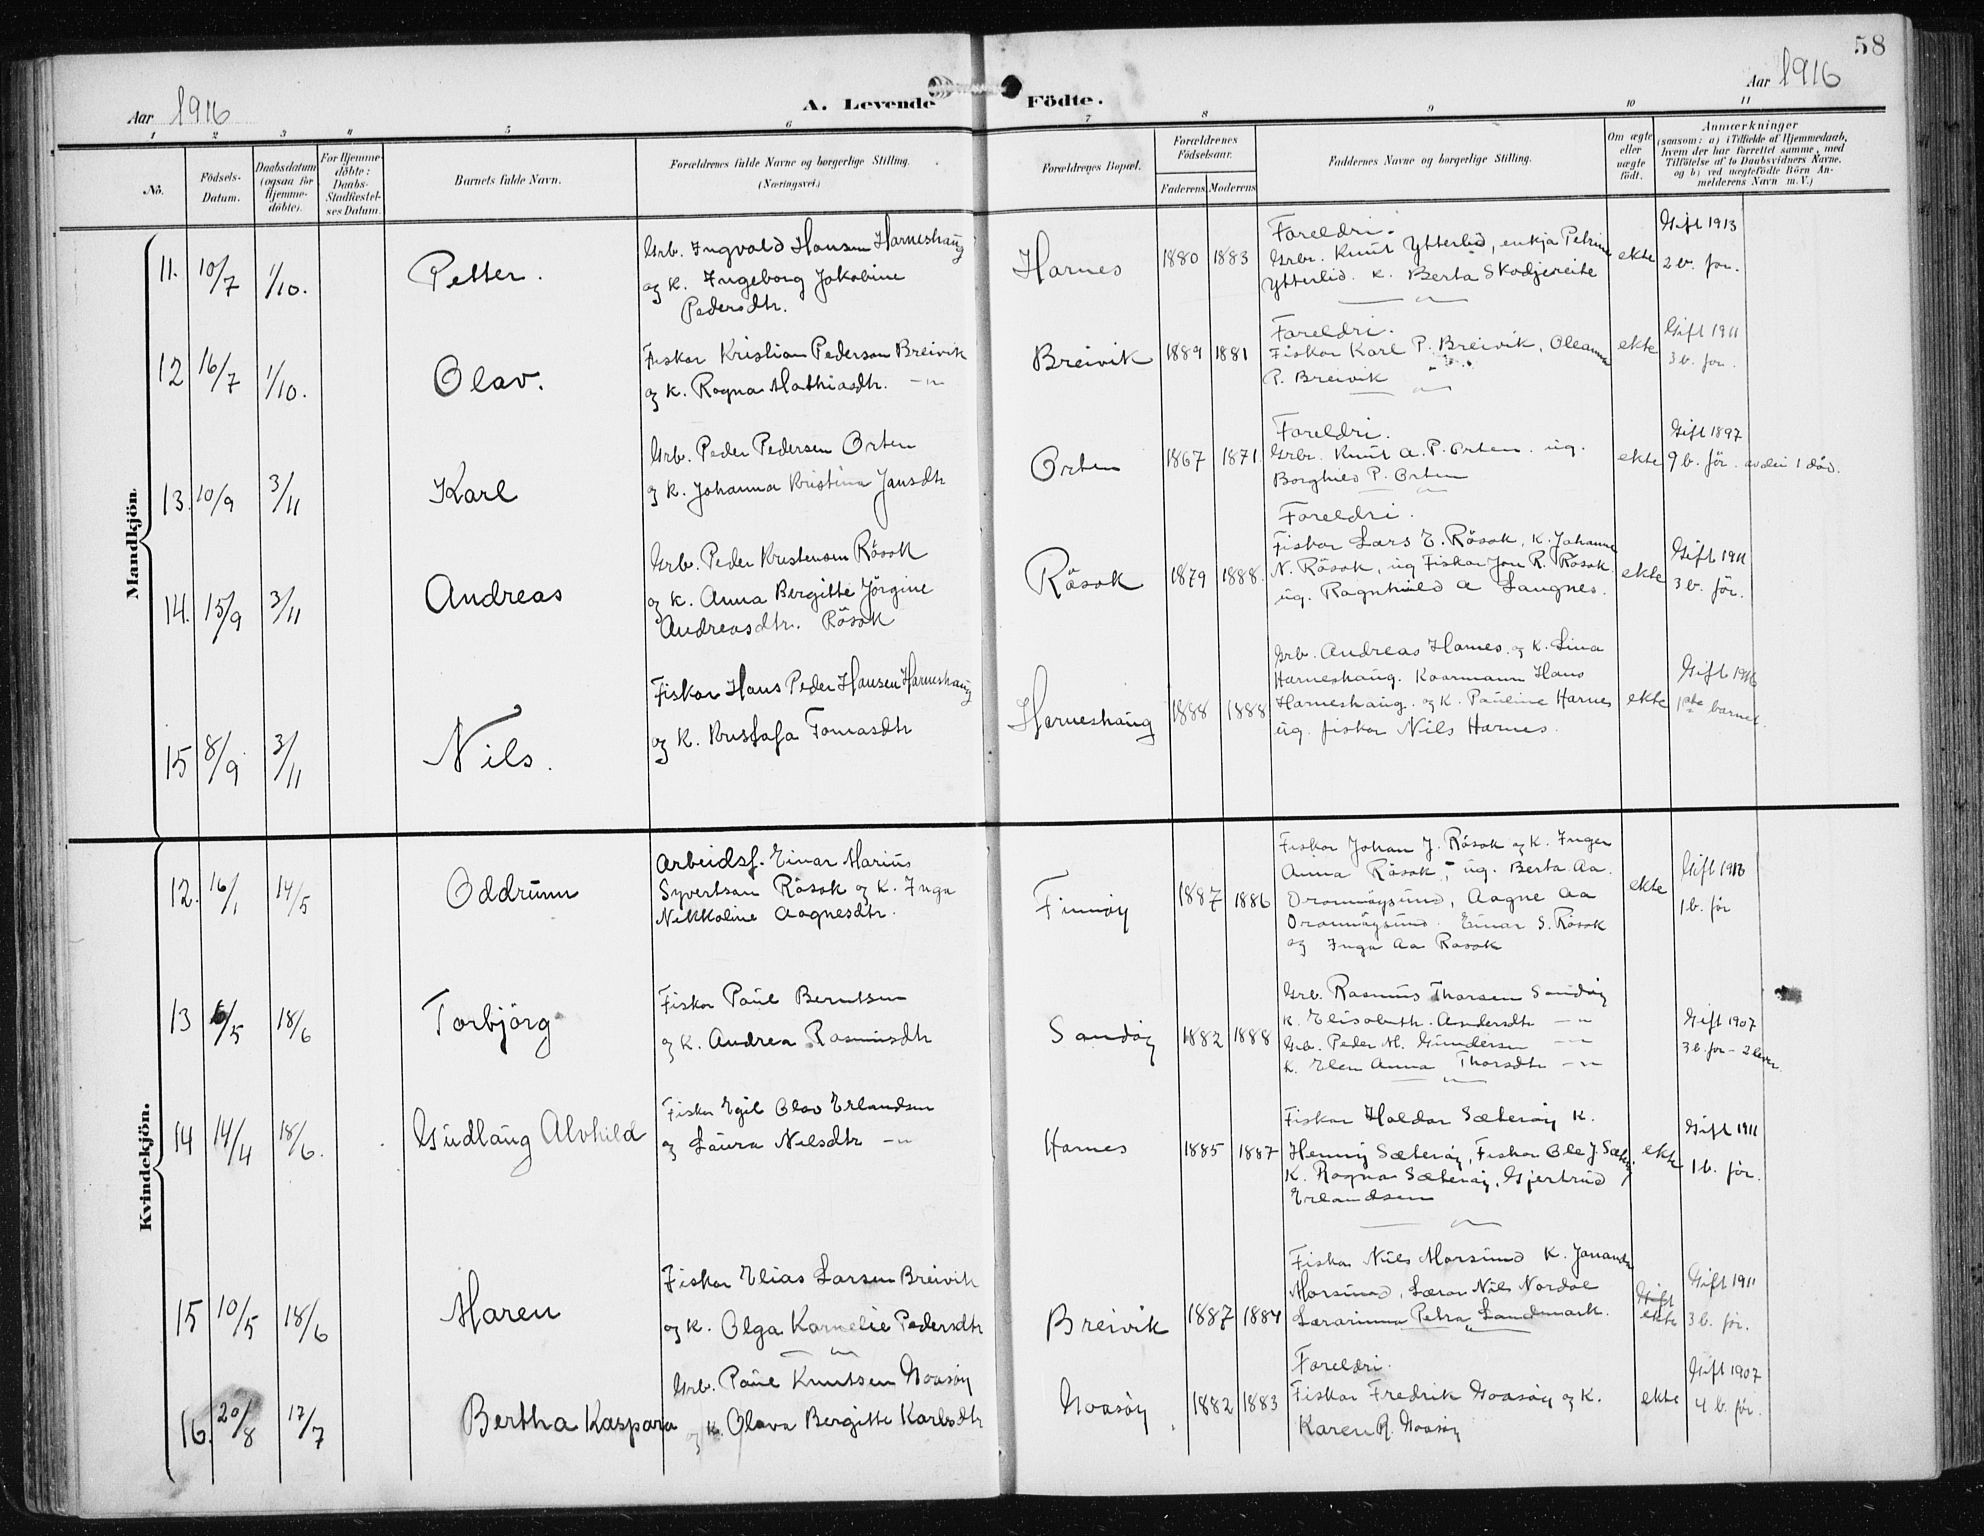 58
Aar 1916
A. Levende Födte.
Aar 1916
1 2 3 4 5 6 7 8 9 10 11
No.
Födsels-Datum.
Daabsdatum (ogsaa for Hjemme-döbte).
For Hjemme-döbte: Daabs-Stadfæstel-ses Datum.
Barnets fulde Navn.
Forældrenes fulde Navne og borgerlige Stilling.
(Næringsvei.)
Forældrenes Bopæl.
Forældrenes Födselsaar.
Faderens Moderens
Faddernes Navne og borgerlige Stilling.
Om ægte eller uægte födt.
Anmærkninger
(saasom: a) i Tilfælde af Hjemmedaab,
hvem der har forrettet samme, med
Tilföielse af to Daabsvidners Navne.
og b) ved uægtefödte Börn An-
melderens Navn m. V.)
Mandkjön.
11. 10/7 1/10. Petter.
Grb. Ingvald Hansen Harneshaug
og K. Ingeborg Jakobine
Pedersdtr.
Harnes 1880 1883
Foreldri.
Grbr. Knut Ytterlid, enkja Petrine
Ytterlid. K. Berta Skodjereite
ekte
Gift 1913
2 b. for.
12 16/7 1/10. Olav.
Fiskar Kristian Pederson Breivik
og K. Ragna Mathiasdtr. -"-
Breivik 1889 1881
Foreldri.
Fiskar Karl P. Breivik, Oleanna
P. Breivik
ekte
Gift 1911
3 b. for.
13. 10/9 3/11 Karl
Grb. Peder Pedersen Orten
og K. Johanna Kristina Jansdtr
Orten 1867 1871
Foreldri.
Grbr. Knut A. P. Orten. ug.
Borghild P. Orten
ekte
Gift 1897
9 b. för. avdei 1 död.
14. 15/9 3/11 Andreas
Grb. Peder Kristenson Rösok
og K. Anna Bergitte Jörgine
Andreasdtr. Rösok
Rösok 1879 1888
Foreldri.
Fiskar Lars E. Rösok, K. Johanne
N. Rösok, ug Fiskar Jon R. Rösok
ug. Ragnhild A Langnes.
ekte
Gift 1911
3 b. för.
15 8/9 3/11 Nils.
Fiskar Hans Peder Hansen Harneshaug
og K. Tomasdtr
Harneshaug 1888 1888
Grb. Andreas Harnes. og K. Lina
Harneshaug. Hans
Harneshaug. og K. Pauline Harnes
ug. fiskar Nils Harnes.
ekte
Gift 1916
1ste barnet.
Kvindekjön.
12. 16/1 14/5 Oddrunn
Arbeidsf. Einar Marius
Syvertsan Rösok og K. Inga
Nikkoline Aagnesdtr.
Finnöy 1887 1886
Fiskar Johan J. Rösok og K. Inger
Anna Rösok, ug. Berta Aa.
Dronnöysund, Aagne Aa
Dronnöysund. Einar S. Rösok
og Inga Aa Rösok
ekte
Gift 1913
1 b. för
13 6/5 18/6 Torbjörg
Fiskar Paul Berntsen
og K. Andrea Rasmusdtr
Sandöy 1882 1888
Grb. Rasmus Thorsen Sandöy
K. Elisabeth. Andersdtr -"-
Grb. Peder M. Gundersen -"-
K. Elen Anna Thorsdtr -"-
Gift 1907
3 b. for - 2 lever
14 14/4 18/6. Gudlaug Alvhild
Fiskar Egil Olav Erlandsen
og Laura Nilsdtr -"-
Harnes 1885 1887
Fiskar Haldor Sæteröy K.
Henny Sæteröy, Fiskar Ole J. Sæteröy
K. Ragna Sæteröy, Gjertrud
Erlandsen
ekte
Gift 1911
1 b. för.
15 10/5 18/6 Maren
Fiskar Elias Larsen Breivik
og K. Olga Kornelie Pedersdtr
Breivik 1887 1884
Fiskar Nils Morsund K.
Morsund, Lærar Nils Nordal
Lærarinna Petra Landmark.
Gift
ekte
Gift 1911
3 b. för.
16. 20/8 17/7 Bertha Kaspara
Grb. Paul Knutsen Noasöy
og K. Olava Bergitte Karlsdtr
Noasöy 1882 1883
Foreldri.
Fiskar Fredrik Noasöy og K.
Karen R. Noasöy
ekte
Gift 1907
4 b. för.